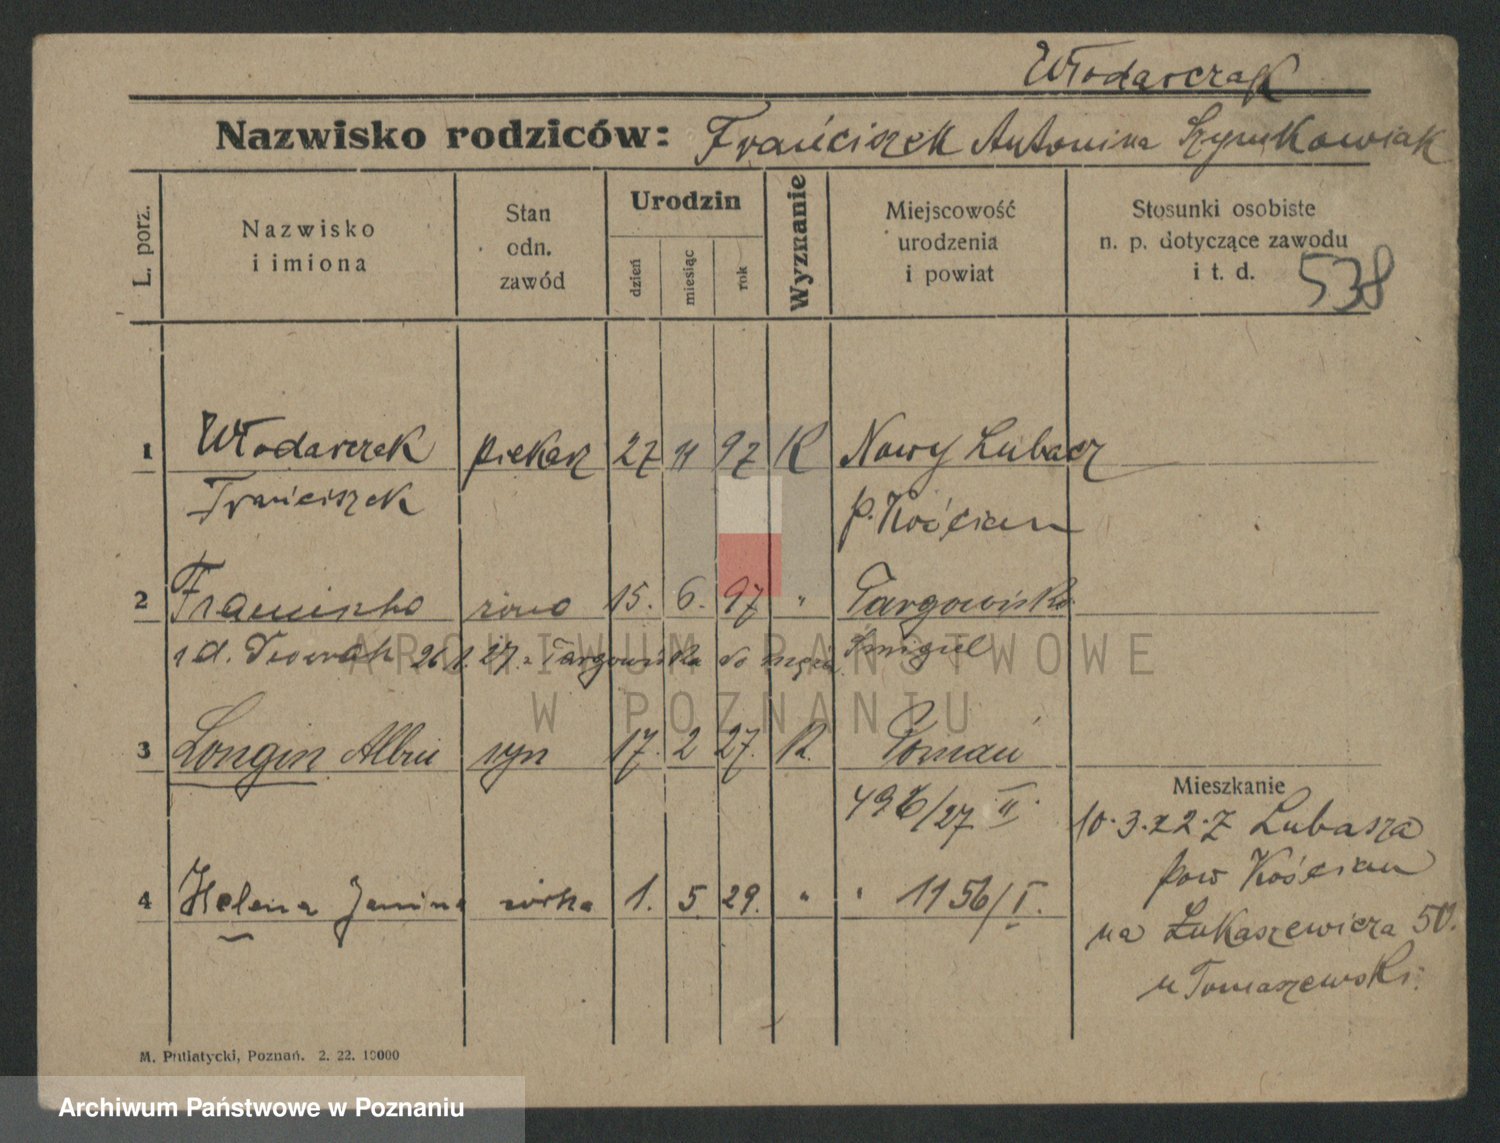 Włodarczak
Nazwisko rodziców: Franciszek Antonina Szymkowiak
L. porz.
Nazwisko
i imiona
Stan
odn.
zawód
Urodzin
dzień
miesiąc
rok
Wyznanie
Miejscowość
urodzenia
i powiat
Stosunki osobiste
n. p. dotyczące zawodu
i t. d.
538
1 Włodarczak piekarz 27 11 97 K Nowy Lubacz
Franciszek p. Kościan
2 Franciszka żona 15. 6. 97 " Targowisko
z d. Nowak 26.1.27. z Targowiska do męża Śmigiel
3 Longin Albin syn 17. 2 27. K. Poznań
496/27 II.
4 Helena Janina córka 1. 5. 29. " " 1156/I.
Mieszkanie
10.3.22. z Lubasza
pow Kościan
na Łukaszewicza 50.
u Tomaszewski.
M. Putiatycki, Poznań. 2. 22. 10000
ARCHIWUM PAŃSTWOWE
W POZNANIU
Archiwum Państwowe w Poznaniu